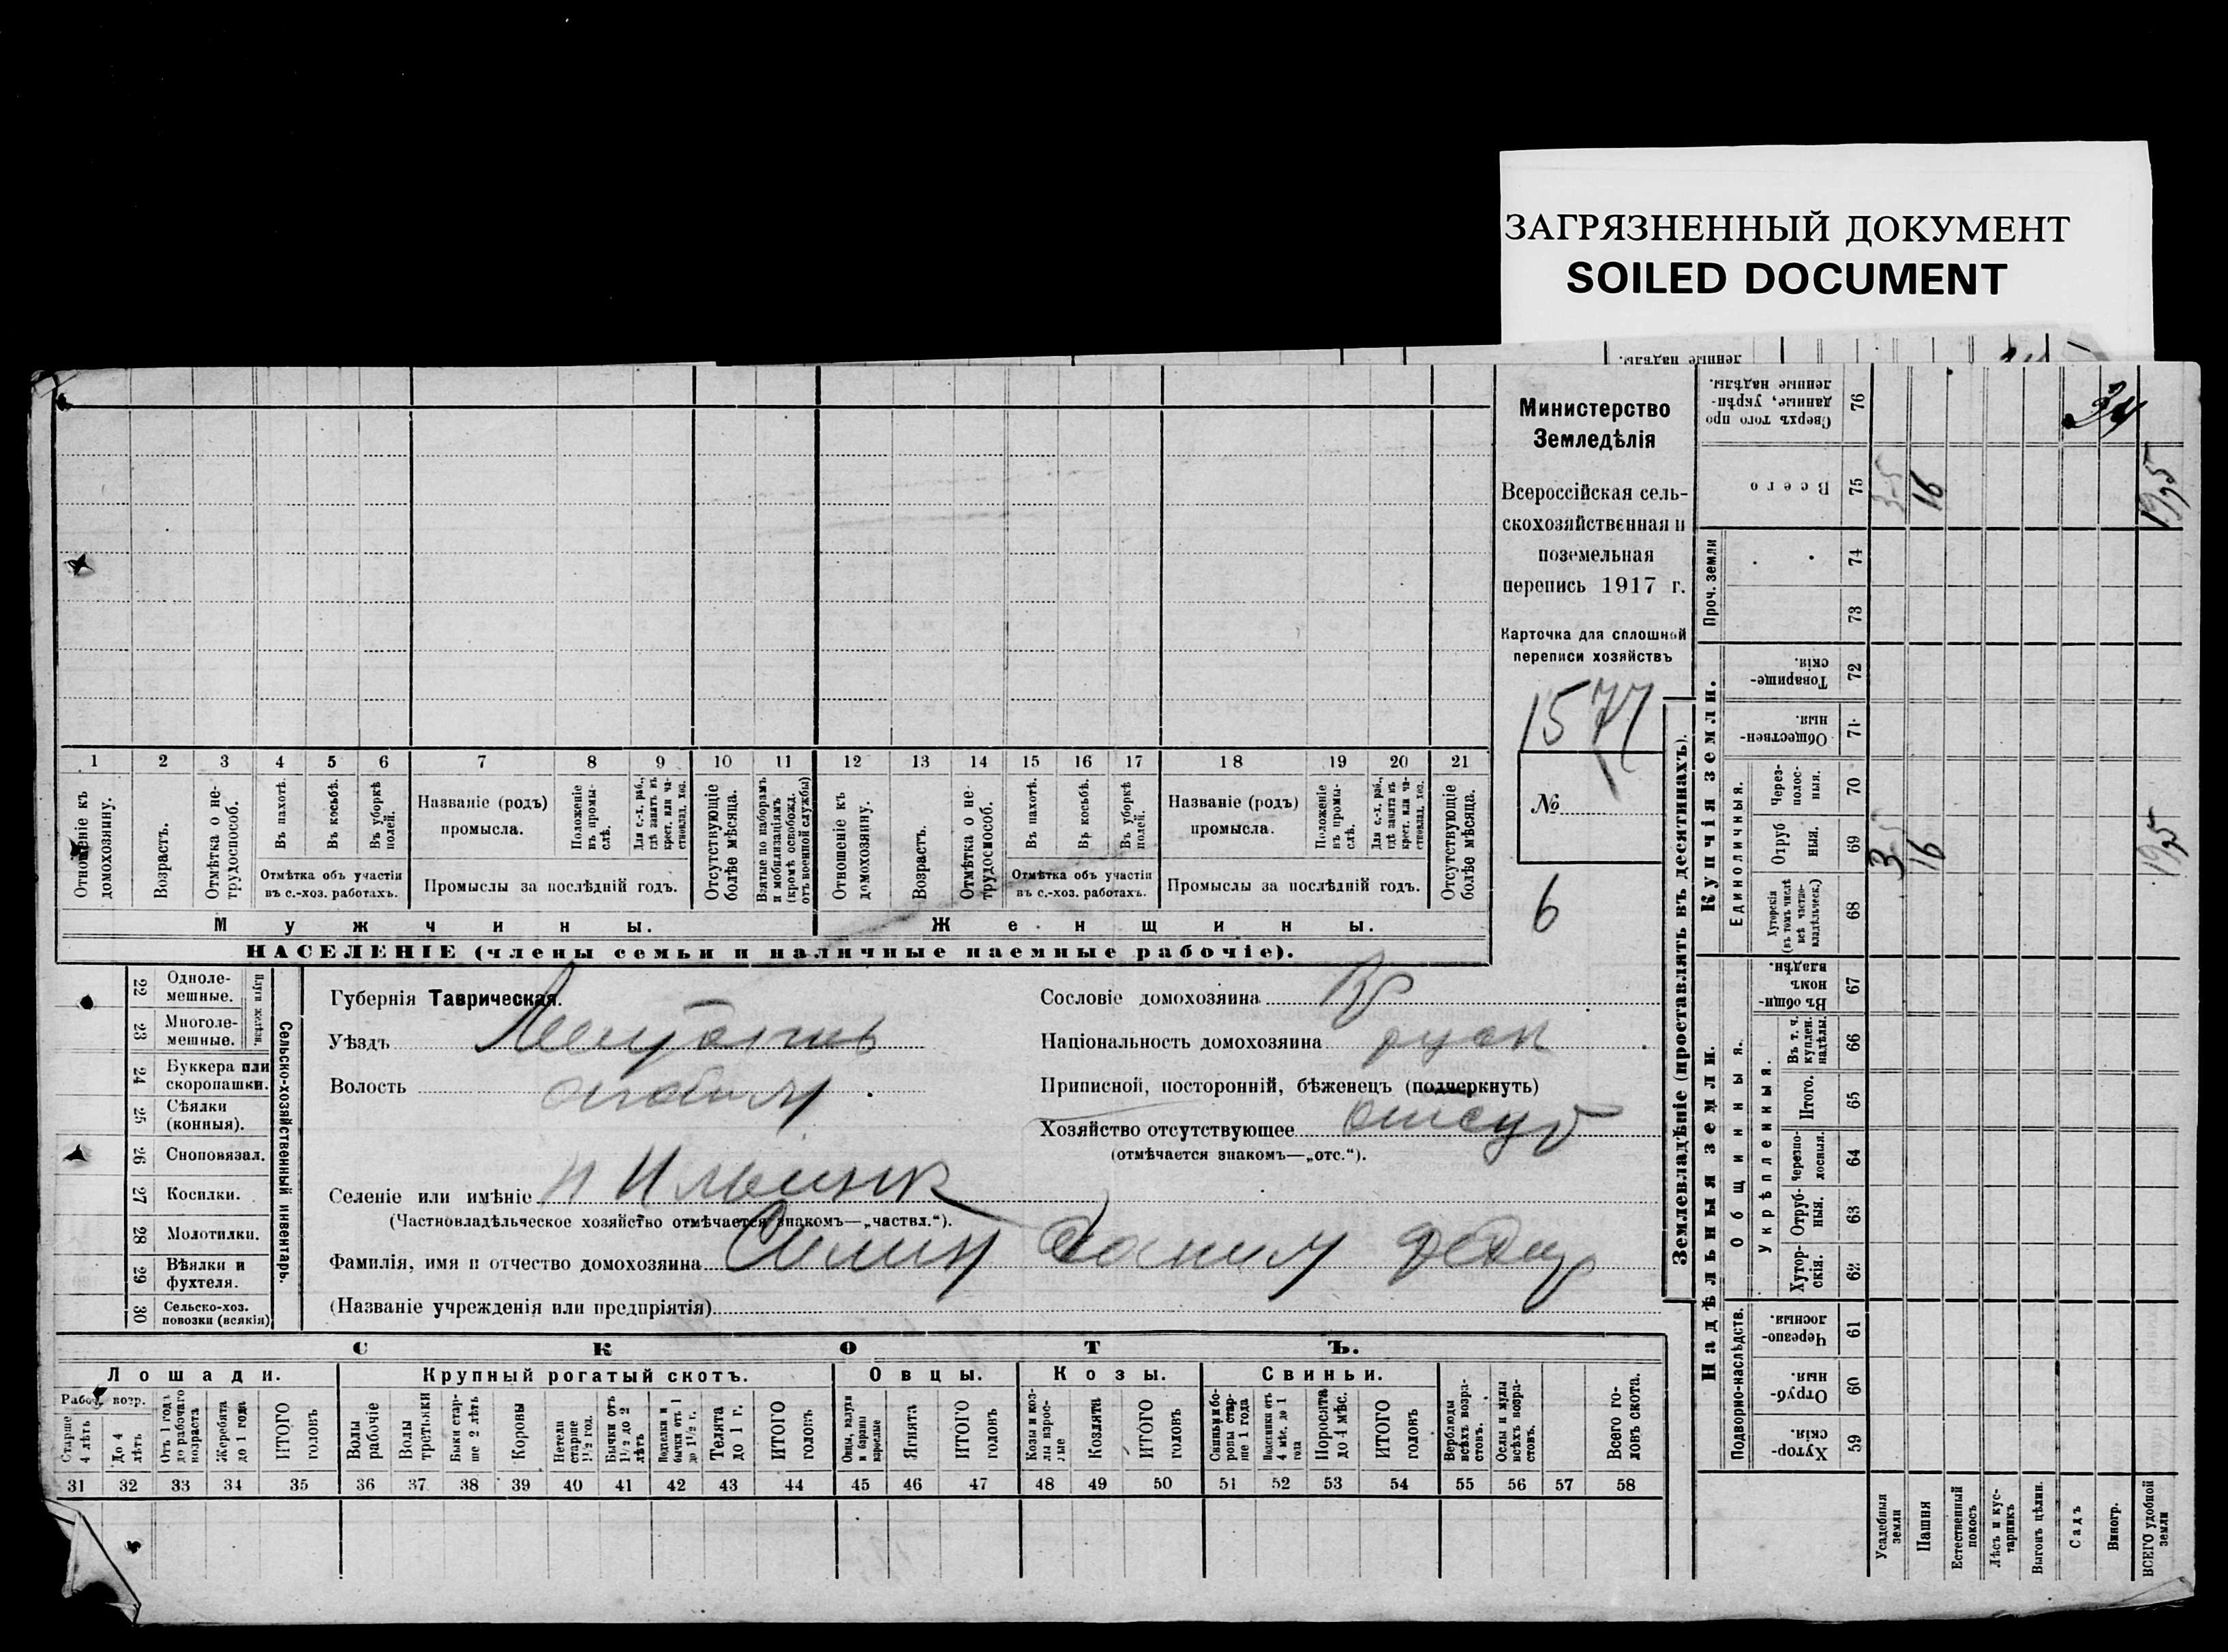 ЗАГРЯЗНЕННЫЙ ДОКУМЕНТ
SOILED DOCUMENT
Министерство
Земледѣлія
Всероссійская сель-
скохозяйственная и
поземельная
перепись 1917 г.
Карточка для сплошной
переписи хозяйствъ
1577
№
6
1 2 3 4 5 6 7 8 9 10 11 12 13 14 15 16 17 18 19 20 21
Отношеніе къ домохозяину.
Возрастъ.
Отмѣтка о не-трудоспособ.
Въ пахотѣ.
Въ косьбѣ.
Въ уборкѣ полей.
Отмѣтка объ участіи
въ с.-хоз. работахъ.
Названіе (родъ)
промысла.
Положеніе въ промы-слѣ.
Для с.-х. раб., гдѣ занятъ въ крест. или ча-стновлад. хоз.
Промыслы за послѣдній годъ.
Отсутствующіе болѣе мѣсяца.
Взятые по наборамъ и мобилизаціямъ (кромѣ освобожд. отъ военной службы)
Отношеніе къ домохозяину.
Возрастъ.
Отмѣтка о не-трудоспособ.
Въ пахотѣ.
Въ косьбѣ.
Въ уборкѣ полей.
Отмѣтка объ участіи
въ с.-хоз. работахъ.
Названіе (родъ)
промысла.
Положеніе въ промы-слѣ.
Для с.-х. раб., гдѣ занята въ крест. или ча-стновлад. хоз.
Промыслы за послѣдній годъ.
Отсутствующіе болѣе мѣсяца.
Мужчины.
Женщины.
НАСЕЛЕНІЕ (члены семьи и наличные наемные рабочіе).
22 Одноле-мешные.
23 Многоле-мешные.
Плуги желѣзн.
24 Буккера или скоропашки.
25 Сѣялки (конныя).
26 Сноповязал.
27 Косилки.
28 Молотилки.
29 Вѣялки и фухтеля.
30 Сельско-хоз. повозки (всякія)
Сельско-хозяйственный инвентарь.
Губернія Таврическая.
Уѣздъ
Волость
Селеніе или имѣніе
(Частновладѣльческое хозяйство отмѣчается знакомъ—„частвл.“).
Фамилія, имя и отчество домохозяина Силин Данил Федор
(Названіе учрежденія или предпріятія)
Сословіе домохозяина Кр
Національность домохозяина русск
Приписной, посторонній, бѣженецъ (подчеркнуть)
Хозяйство отсутствующее отсут
(отмѣчается знакомъ—„отс.“).
СКОТЪ.
Лошади.
Крупный рогатый скотъ.
Овцы.
Козы.
Свиньи.
Рабоч. возр.
Старше 4 лѣтъ
До 4 лѣтъ
Отъ 1 года до рабочаго возраста
Жеребята до 1 года
ИТОГО головъ
Волы рабочіе
Волы третьяки
Быки стар-ше 2 лѣтъ
Коровы
Нетели старше 1½ год.
Бычки отъ 1½ до 2 лѣтъ
Телята до 1 г.
ИТОГО головъ
Овцы, валухи и бараны взрослые
Ягнята
ИТОГО головъ
Козы и коз-лы взрос-лые
Козлята
ИТОГО головъ
Свиньи и бо-ровы стар-ше 1 года
Подсвинки отъ 4 мѣс. до 1 года
Поросята до 4 мѣс.
ИТОГО головъ
Верблюды всѣхъ возра-стовъ.
Ослы и мулы всѣхъ возра-стовъ.
Всего го-ловъ скота.
31 32 33 34 35 36 37 38 39 40 41 42 43 44 45 46 47 48 49 50 51 52 53 54 55 56 57 58
Землевладѣніе (проставлять въ десятинахъ).
Надѣльныя земли.
Купчія земли.
Проч. земли
Подворно-наслѣдств.
Общинныя.
Укрѣпленныя.
Единоличныя.
Сверхъ того про-данные, укрѣп-ленные надѣлы. 76 34
Всего 75 3-5 16 19,5
74
73
Товарище-скія. 72
Обществен-ныя. 71
Через-полос-ныя. 70
Отруб-ныя. 69 3,5 16 19,5
Хуторскія (въ томъ числѣ всѣ частно-владѣльческ.) 68
Въ общин-номъ владѣн. 67
Въ т. ч. куплен. надѣлы. 66
Итого. 65
Черезпо-лосныя. 64
Отруб-ныя. 63
Хутор-скія. 62
Черезпо-лосныя. 61
Отруб-ныя. 60
Хутор-скія. 59
Усадебныя земли
Пашня
Естественный покосъ
Лѣсъ и кус-тарникъ
Выгонъ цѣлин.
Садъ
Виногр.
ВСЕГО удобной земли